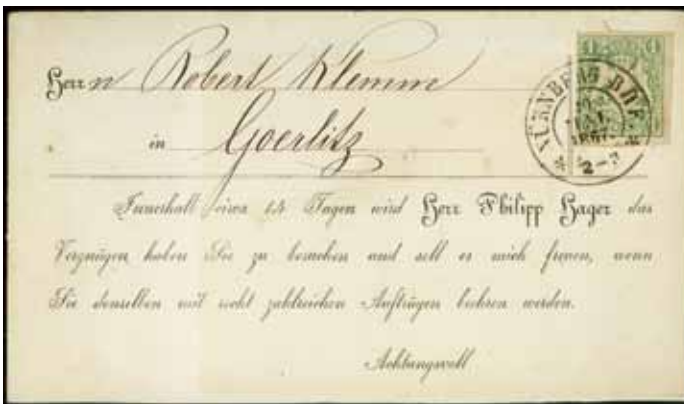 1 1
NÜRNBERG BHF.
1867
2-3
Herrn Robert Klemm
in Goerlitz
Innerhalb circa 14 Tagen wird Herr Philipp Hager das
Vergnügen haben Sie zu besuchen und soll es mich freuen, wenn
Sie denselben mit recht zahlreichen Aufträgen beehren werden.
Achtungsvoll